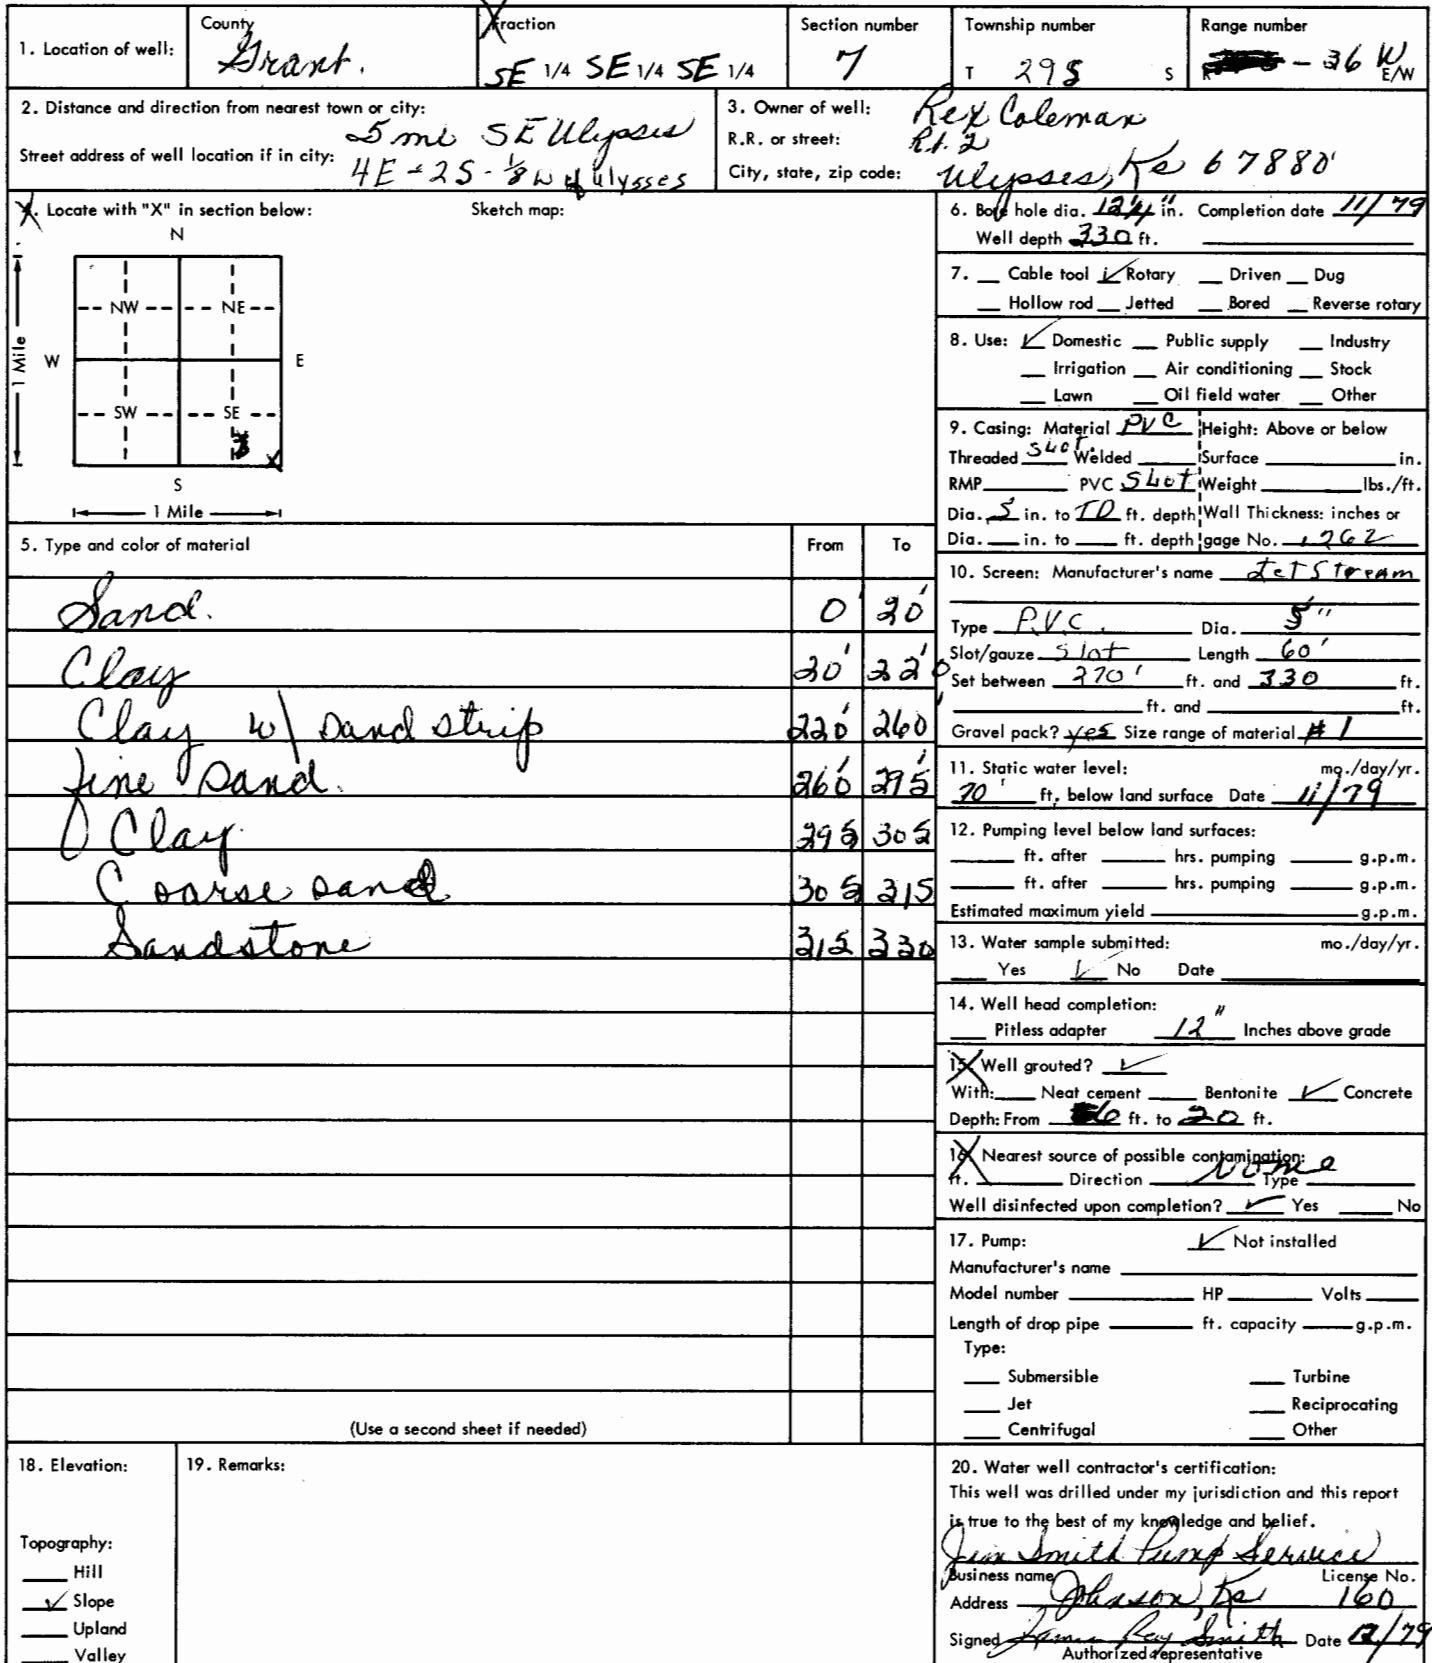 1. Location of well:
County
Grant.
Fraction
SE 1/4 SE 1/4 SE 1/4
Section number
7
Township number
T 29S S
Range number
- 36 W
E/W
2. Distance and direction from nearest town or city:
5 mi SE Ulysses
Street address of well location if in city:
4E - 2S - 1/8 W of Ulysses
3. Owner of well: Rex Coleman
R.R. or street: Rt. 2
City, state, zip code: Ulysses, Ks 67880
4. Locate with "X" in section below:
Sketch map:
N
NW NE
W E
SW SE
X
S
1 Mile
1 Mile
5. Type and color of material From To
Sand. 0' 20'
Clay 20' 220'
Clay w/ sand strip 220' 260'
fine sand. 260' 295'
Clay 295 305
Coarse sand 305 315
Sandstone 315 330
(Use a second sheet if needed)
6. Bore hole dia. 12 1/4" in. Completion date 11/79
Well depth 330 ft.
7. Cable tool ✓ Rotary Driven Dug
Hollow rod Jetted Bored Reverse rotary
8. Use: ✓ Domestic Public supply Industry
Irrigation Air conditioning Stock
Lawn Oil field water Other
9. Casing: Material PVC Height: Above or below
Threaded Slot. Welded Surface in.
RMP PVC Slot Weight lbs./ft.
Dia. 5 in. to TD ft. depth Wall Thickness: inches or
Dia. in. to ft. depth gage No. .262
10. Screen: Manufacturer's name JetStream
Type P.V.C. Dia. 5"
Slot/gauze Slot Length 60'
Set between 270' ft. and 330 ft.
ft. and ft.
Gravel pack? yes Size range of material #1
11. Static water level: mo./day/yr.
70' ft. below land surface Date 11/79
12. Pumping level below land surfaces:
ft. after hrs. pumping g.p.m.
ft. after hrs. pumping g.p.m.
Estimated maximum yield g.p.m.
13. Water sample submitted: mo./day/yr.
Yes ✓ No Date
14. Well head completion:
Pitless adapter 12" Inches above grade
15. Well grouted? ✓
With: Neat cement Bentonite ✓ Concrete
Depth: From 6 ft. to 20 ft.
16. Nearest source of possible contamination:
ft. Direction None Type
Well disinfected upon completion? ✓ Yes No
17. Pump: ✓ Not installed
Manufacturer's name
Model number HP Volts
Length of drop pipe ft. capacity g.p.m.
Type:
Submersible Turbine
Jet Reciprocating
Centrifugal Other
18. Elevation:
Topography:
Hill
✓ Slope
Upland
Valley
19. Remarks:
20. Water well contractor's certification:
This well was drilled under my jurisdiction and this report
is true to the best of my knowledge and belief.
Jim Smith Pump Service
Business name License No.
Address Johnson, Ks 160
Signed James Ray Smith Date 12/79
Authorized representative